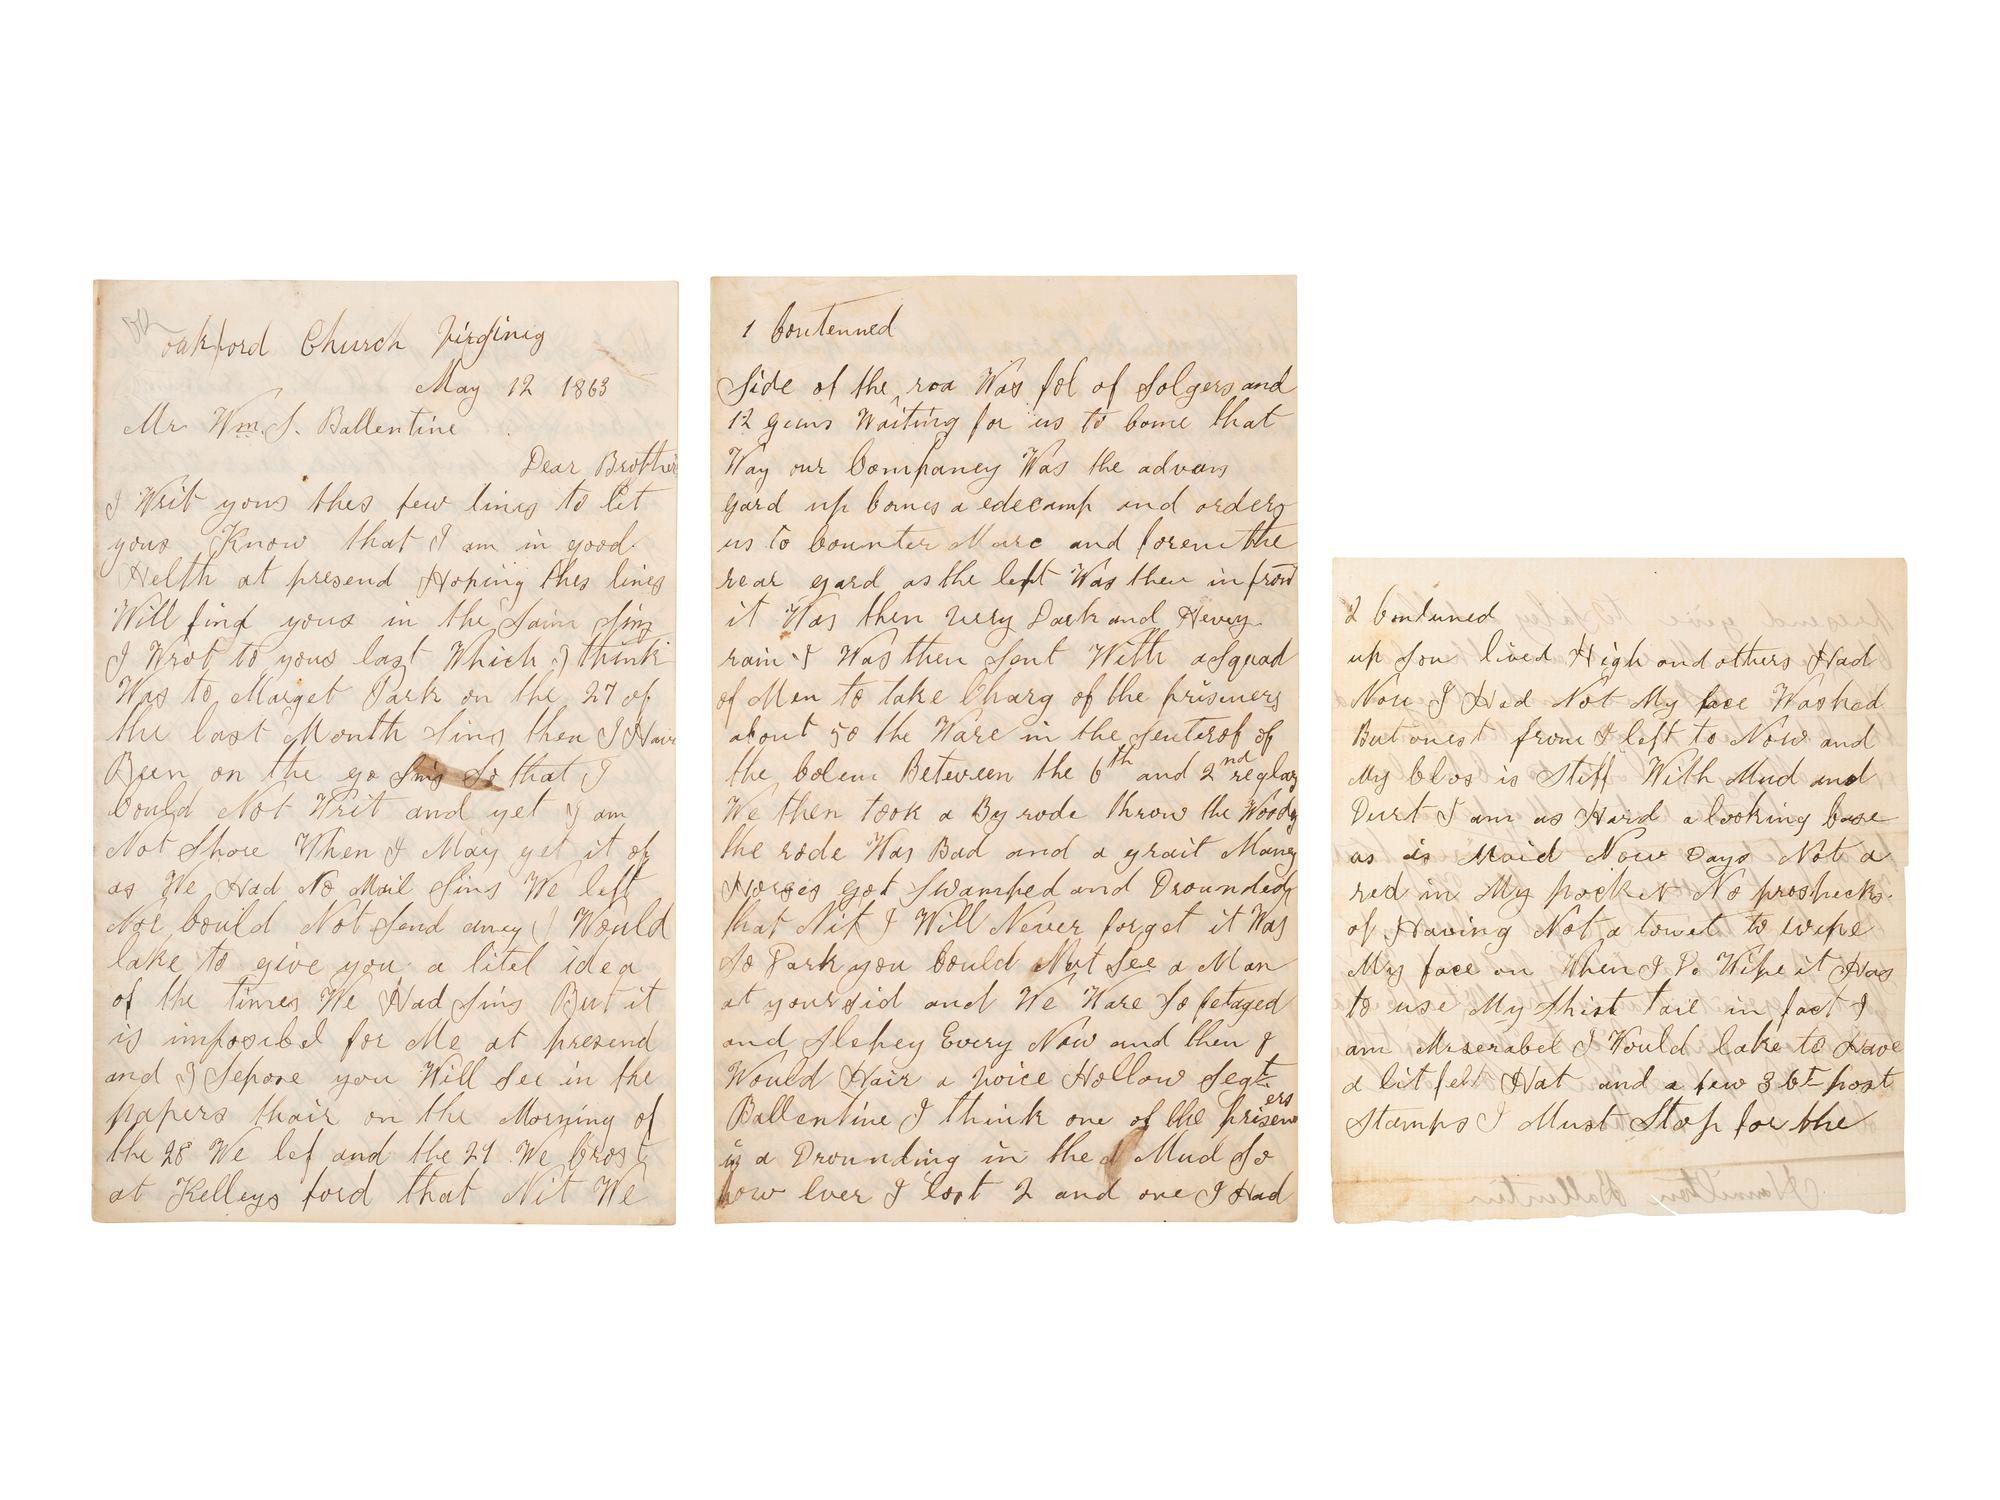 oakford Church Virginia
May 12 1863
Mr Wm. J. Ballentine
Dear Brother
I Writ yous thes few lines to let
yous Know that I am in good
Helth at presend Hoping thes lines
Will find yous in the Saim
I Wrot to yous last Which I think
Was to Marget Park on the 27 of
the last Month Sins then I Hair
Been on the go Sins So that I
Could Not Writ and yet I am
Not Shore When I May get it of
as We Had No Mail Sins We left
Nor Could Not Send aney I Would
lake to give you a litel idea
of the times We Had Sins But it
is imposibel for Me at presend
and I Sepose you Will See in the
papers thair on the Morning of
the 28 We lef and the 29 We Crost
at Kelleys ford that Nit We
1 Contenued
Side of the roa Was fol of Solgers and
12 guns Waiting for us to Come that
Way our Companey Was the advans
gard up Comes a edecamp and orders
us to Counter Marc and forem the
rear gard as the left Was then in front
it Was then very Dark and Hevey
rain I Was then Sent With a Squad
of Men to take Charg of the prisners
about 50 the Ware in the Senterof of
the Colem Between the 6th and 2nd reglars
We then took a By rode throw the Woods
the rode Was Bad and a grait Maney
Horses got Swamped and Drounded
that Nit I Will Never forget it Was
So Dark you Could Not See a Man
at your sid and We Ware So fetaged
and Slepey Every Now and then I
Would Hair a voice Hollow Segt.
Ballentine I think one of the priseners
is a Drounding in the Mud So
How Ever I lost 2 and one I Had
2 Contuned
up Som lived High and others Had
Non I Had Not My face Washed
But onest from I left to Now and
My Clos is Stiff With Mud and
Durt I am as Hard a looking Case
as is Maid Now Days Not a
red in My pocket No prospecks
of Having Not a towet to wipe
My face on When I Do Wipe it Has
to use My Shirt tail in fact I
am Miserabel I Would lake to Have
a lit felt Hat and a few 3 Ct post
Stamps I Must Stop for the
Hamilton Ballentine